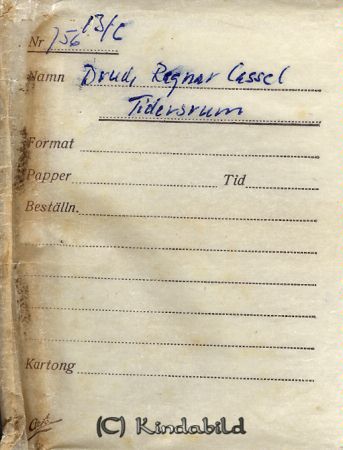 Nr 756 13/C
Namn Drud, Ragnar Cassel
Tidersrum
Format
Papper Tid
Beställn.
Kartong
(C) Kindabild